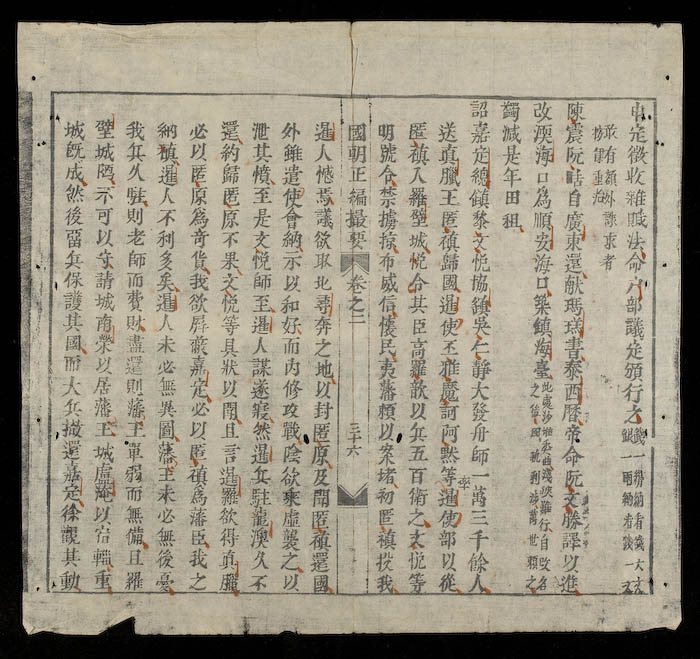 申定徵收雜賦法命戶部議定頒行之
敢有額外誅求者
陳震阮祐自廣東還獻瑪瑓書泰西曆帝命阮文勝譯以進
改澳海口爲順安海口築鎮海臺
蠲減是年田租
詔嘉定總鎮黎文悅協鎮吳仁靜大發舟師一萬三千餘人
率
送真臘王匿禎歸國暹使丕雅魔訶阿默等遣使部以從
匿禎入羅壁城悅令其臣高羅歆以兵五百衛之文悅等
明號令禁擄掠布威信懷民夷藩賴以案堵初匿禎投我
國朝正編撮要 卷之二 三十六
暹人憾焉議欲取北尋奔之地以封匿原及聞匿禎還國
外雖遣使會納示以和好而內修攻戰陰欲乘虛襲之以
泄其憤至是文悅師至暹人謀遂寢然暹兵駐龍澳久不
還約歸匿原不果文悅等具狀以聞且言暹羅欲得真臘
必以匿原爲奇貨我欲屏蔽嘉定必以匿禎爲藩臣我之
納禎暹人不利多矣暹人未必無異圖藩王未必無後憂
我兵久駐則老師而費財盡還則藩王單弱而無備且羅
壁城隘不可以守請城南榮以居藩王城盧淹以峙輜重
城既成然後留兵保護其國而大兵撤還嘉定徐觀其動